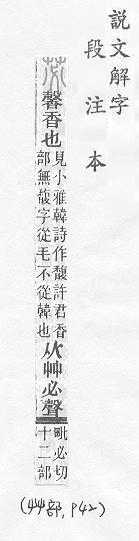 說文解字
段注本
苾
馨香也
見小雅韓詩作馥許君香
部無馥字從毛不從韓也
从艸必聲
毗必切
十二部
(艸部, P42)